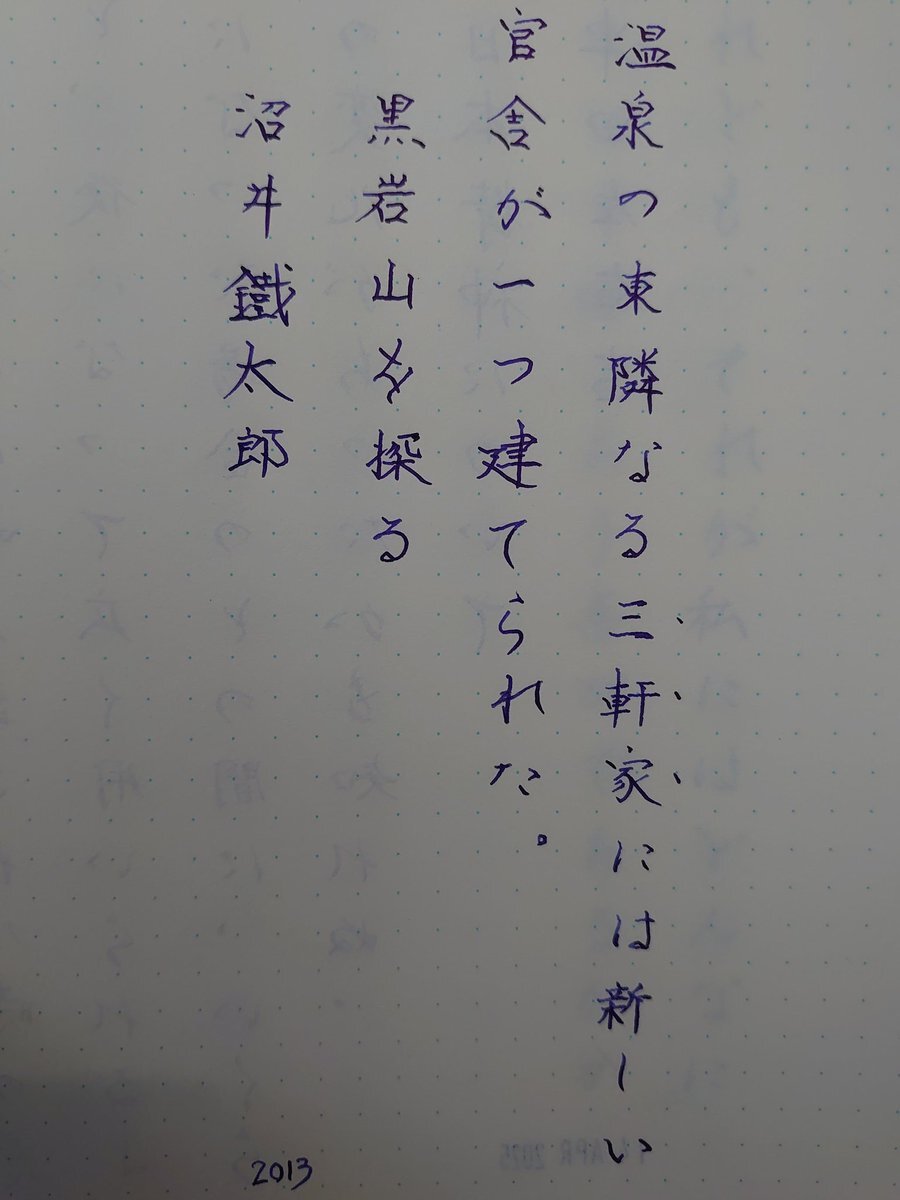 温泉の東隣なる三軒家には新しい
官舎が一つ建てられた。
黒岩山を探る
沼井鐵太郎
2013